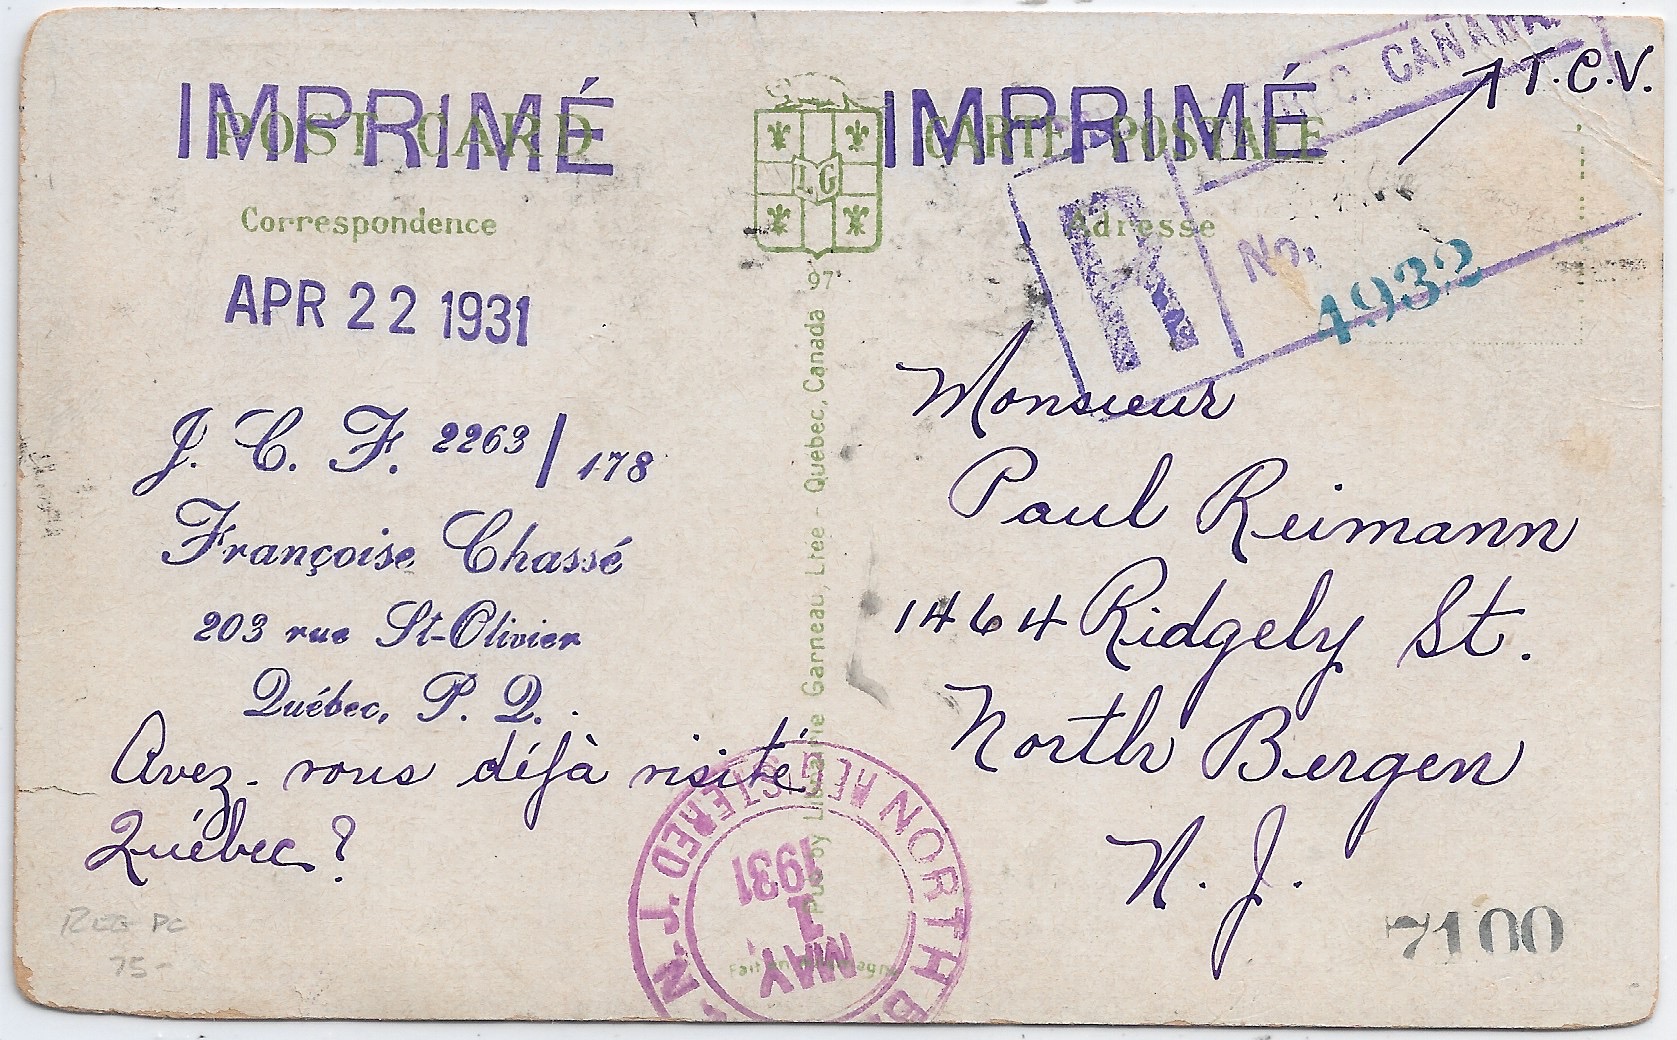 IMPRIMÉ
POST CARD
Correspondence
APR 22 1931
J. C. F. 2263/178
Françoise Chassé
203 rue St-Olivier
Québec, P. Q.
Avez-vous déjà visité
Québec?
REG PC
75-
LG
97
Librairie Garneau, Ltee - Quebec, Canada
NORTH
REGISTERED
N.J.
MAY
1
1931
IMPRIMÉ
CARTE POSTALE
Adresse
CANADA
T.C.V.
R
No.
1932
Monsieur
Paul Reimann
1464 Ridgely St.
North Bergen
N. J.
7100